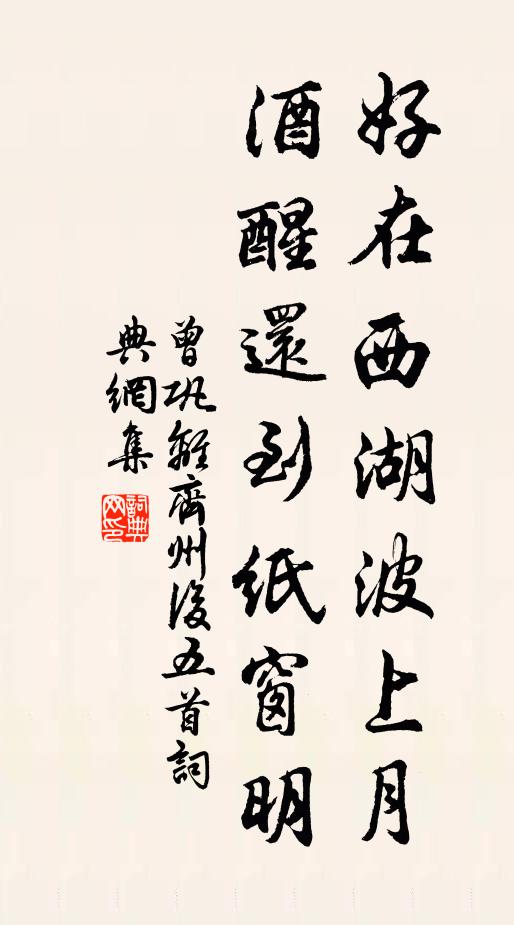 好在西湖波上月
酒醒還到紙窗明
曾巩離齊州後五首詞
典網集
詞典網印